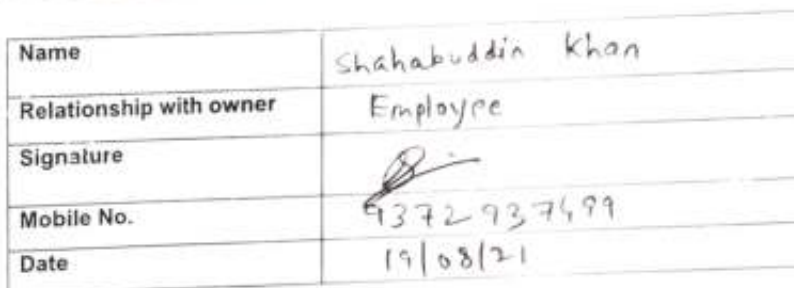 Name Shahabuddin Khan
Relationship with owner Employee
Signature
Mobile No. 9372937499
Date 19/08/21